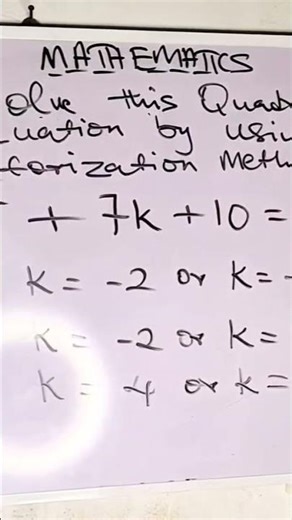 MATHEMATICS
olve this Quad
uation by usin
torization Meth
+ 7k + 10 =
k = -2 or k = -
k = -2 or k =
k = 4 or k =